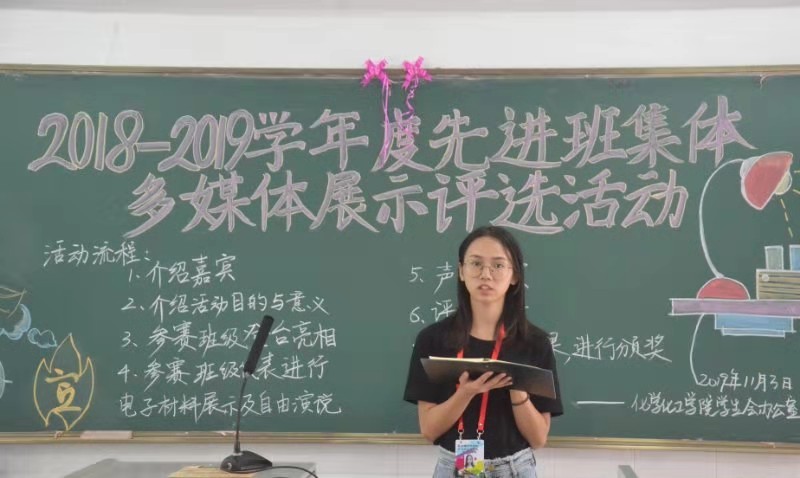 2018-2019学年度先进班集体
多媒体展示评选活动
活动流程：
1. 介绍嘉宾
2. 介绍活动目的与意义
3. 参赛班级 台亮相
4. 参赛班级代表进行
电子材料展示及自由演说
5. 声
6. 评
果,进行颁奖
2019年11月3日
——化学化工学院学生会办公室
立